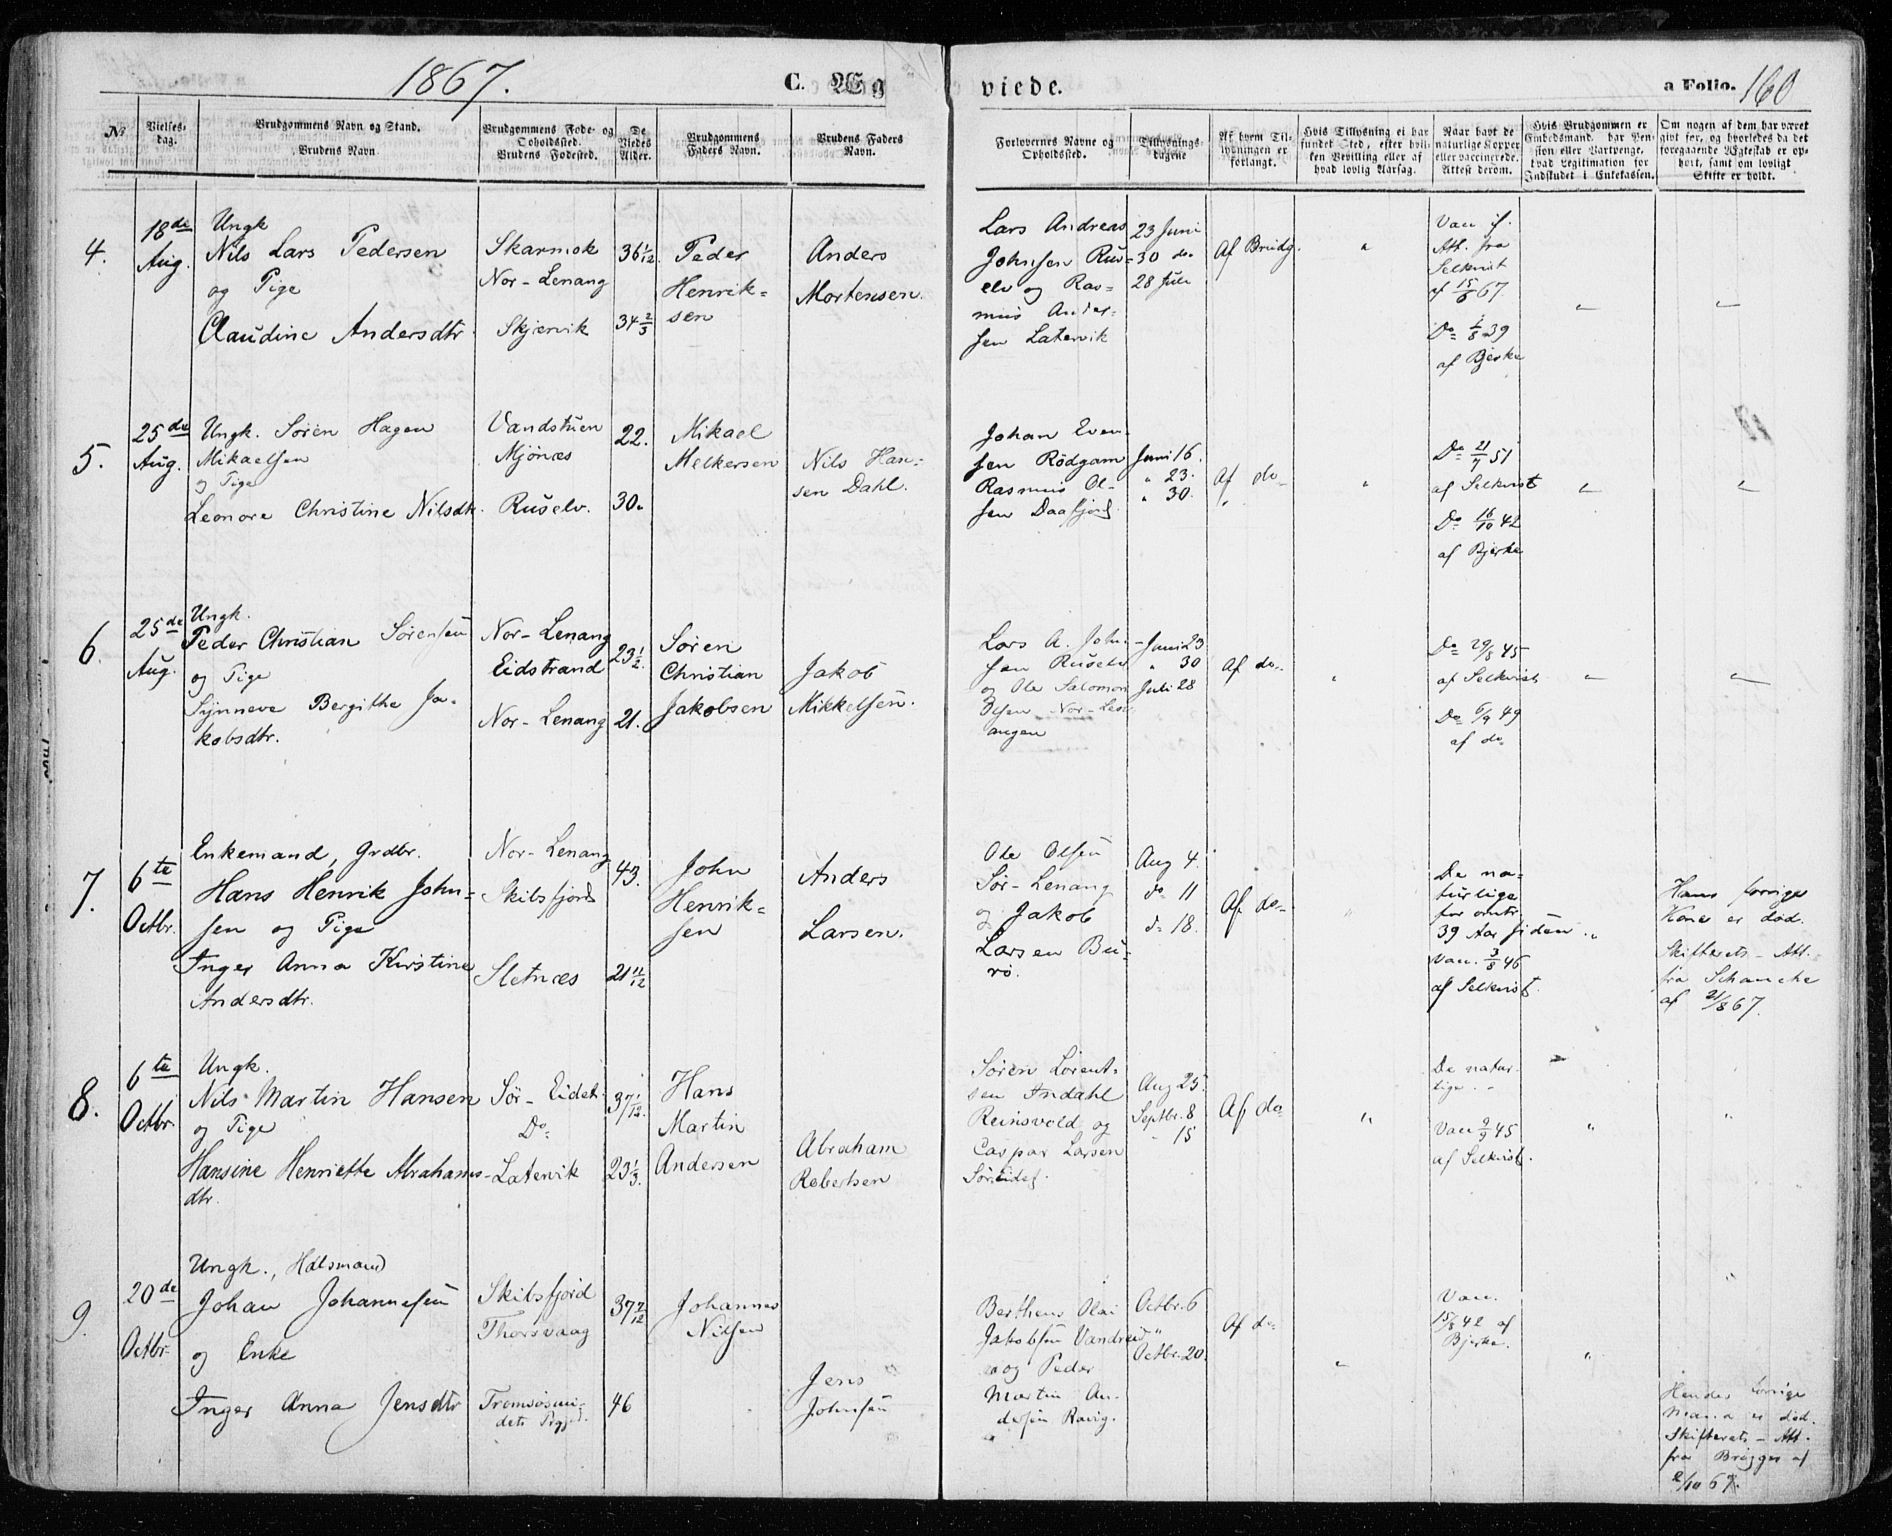 1867.
C. Ægviede.
a Folio. 160
№
Vielses-dag.
Brudgommens Navn og Stand.
Brudens Navn.
Brudgommens Føde- og Opholdssted.
Brudens Fødested.
De Viedes Alder.
Brudgommens Faders Navn.
Brudens Faders Navn.
Forlovernes Navne og Opholdssted.
Tillysnings-dagene
Af hvem Tillysningen er forlangt.
Hvis Tillysning ei har fundet Sted, efter hvilken Bevilling eller af hvad lovlig Aarsag.
Naar havt de naturlige Kopper eller vaccinerede. Attest derom.
Hvis Brudgommen er Embedsmand, har Pension eller Vartpenge, hvad Legitimation for Indskudet i Enkekassen.
Om nogen af dem har været givt før, og hvorledes da det foregaaende Ægteskab er ophørt, samt om lovligt Skifte er holdt.
4.
18de
Aug.
Ungk
Nils Lars Pedersen
og Pige
Claudine Andersdtr
Skarmok
Nor-Lenang
Skjærvik
36 1/12
34 2/3
Peder
Henrik=
sen
Anders
Mortensen.
Lars Andreas
Johnsen Rus=
elv og Ras=
mus Ander-
sen Latervik
23 Juni
30 do
28 Juli
Af Brudg.
"
Vac if.
Att. fra
Selkvist
af 15/6 67
Do 1/8 39
af Bjerke
"
"
5.
25de
Aug.
Ungk. Søren Hagen
Mikaelsen
og Pige
Leonore Christine Nilsdtr.
Vandstuen
Mjönæs
Ruselv.
22.
30.
Mikael
Melkersen
Nils Han-
sen Dahl.
Johan Even-
sen Rödgam
Rasmus Ol-
sen Daafjord
Juni 16.
" 23.
" 30.
Af do
"
Do 21/7 51
af Selkvist
Do 16/10 42
af Bjerke
"
"
6.
25de
Aug.
Ungk.
Peder Christian Sørensen
og Pige
Synneve Bergithe Ja-
kobsdtr.
Nor-Lenang
Eidstrand
Nor-Lenang
23 1/2.
21.
Søren
Christian
Jakobsen
Jakob
Mikkelsen.
Lars A. John-
sen Ruselv
og Ole Salomon
Olsen Nor-Len-
angen
Juni 23
" 30
Juli 28
Af do.
"
Do 29/8 45
af Selkvist
Do 6/9 49
af do
"
"
7.
6te
Octbr.
Enkemand, Grdbr.
Hans Henrik John=
sen og Pige
Inger Anna Kirstine
Andersdtr.
Nor-Lenang
Skibsfjord
Sletnæs
43.
21 11/12
John
Henrik=
sen
Anders
Larsen.
Ole Olsen
Sør-Lenang
og Jakob
Larsen Bu-
rö.
Aug 4.
do 11
do 18.
Af do-
"
De na-
turlige
for omtr.
39 Aar siden.
Vac. 3/8 46
af Selkvist.
"
Hans forrige
Kone er død.
Skifterets-Att.
fra Schancke
af 21/8 67.
8.
6te
Octbr.
Ungk.
Nils Martin Hansen
og Pige
Hansine Henriette Abrahams-
dtr.
Sør-Eidet
Do
Latervik
37 1/12.
23 1/3.
Hans
Martin
Andersen
Abraham
Robertsen
Søren Lorent-
sen Indahl
Reinsvold og
Caspar Larsen
Søreidet.
Aug 25.
Septbr. 8
" 15
Af do
"
De natur-
lige.
Vac 9/9 45
af Selkvist.
"
"
9.
20de
Octbr.
Ungk., Hdlsmand
Johan Johannesen
og Enke
Inger Anna Jensdtr
Skibsfjord
Thorsvaag
Tromsøsun-
dets Prgj.
37 7/12
46
Johannes
Nilsen
Jens
Johnsen
Berthens Olai
Jakobsen Vandre
og Peder
Martin An-
dersen Ravig.
Octbr. 6
"
Octbr. 20.
Af do
"
Vac.
15/8 42 af
Bjerke.
"
"
Hendes forrige
Mand er død.
Skifterets-Att.
fra Brögger af
2/10 67.